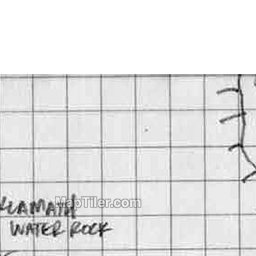 KLAMATH
WATER ROCK
MapTiler.com